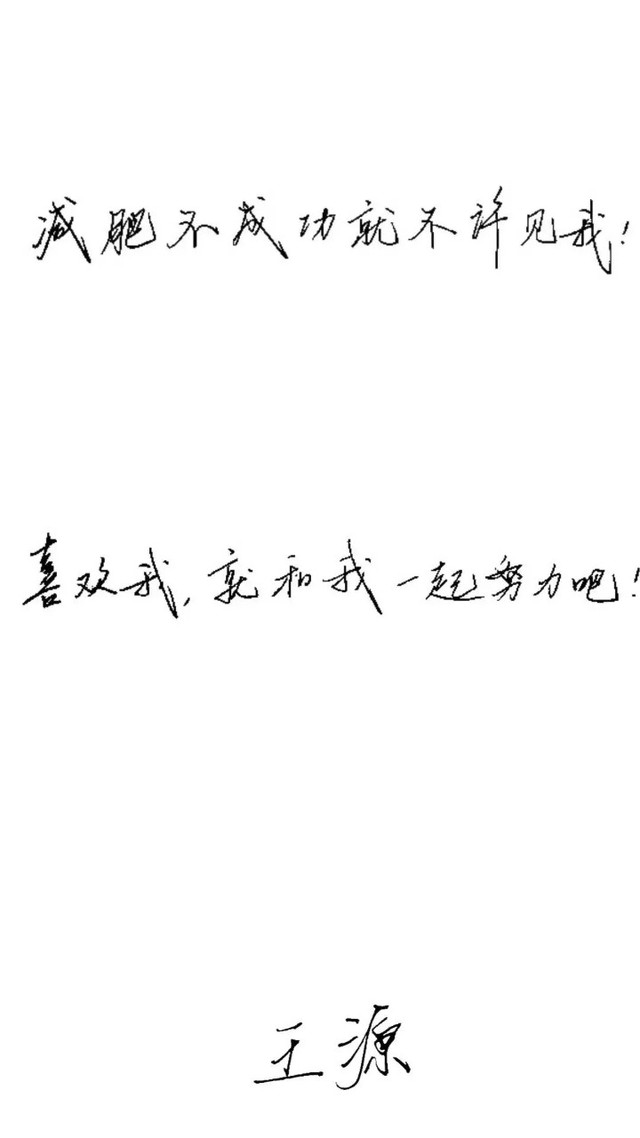 减肥不成功就不许见我!
喜欢我,就和我一起努力吧!
王源